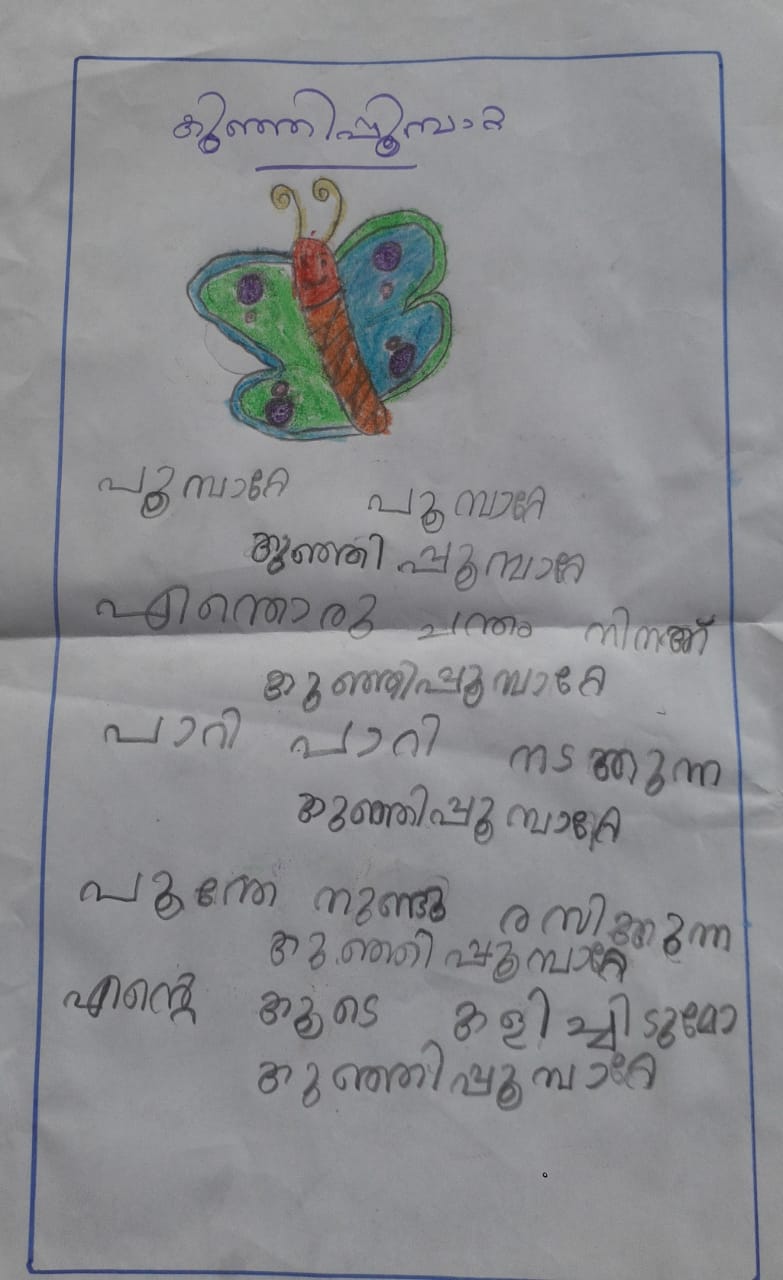 കുഞ്ഞിപ്പൂമ്പാറ്റ
പൂമ്പാറ്റേ പൂമ്പാറ്റേ
കുഞ്ഞിപ്പൂമ്പാറ്റേ
എന്തൊരു ചന്തം നിനക്ക്
കുഞ്ഞിപ്പൂമ്പാറ്റേ
പാറി പാറി നടക്കുന്ന
കുഞ്ഞിപ്പൂമ്പാറ്റേ
പൂന്തേൻ നുണഞ്ഞു രസിക്കുന്ന
കുഞ്ഞിപ്പൂമ്പാറ്റേ
എന്റെ കൂടെ കളിച്ചീടുമോ
കുഞ്ഞിപ്പൂമ്പാറ്റേ